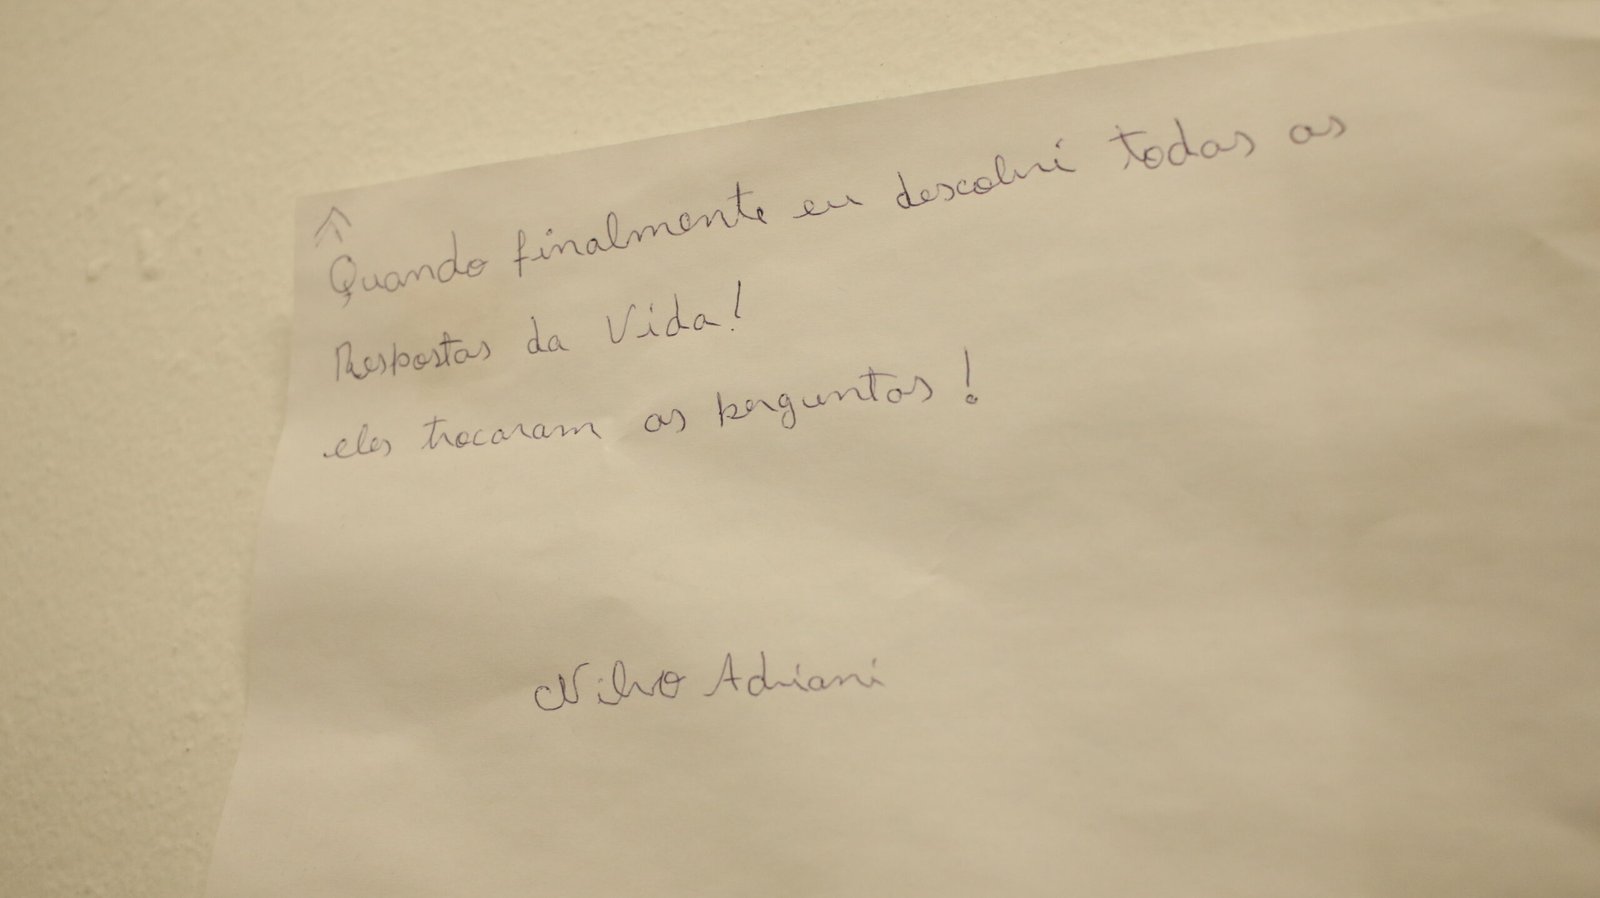 Quando finalmente eu descobri todas as
Respostas da Vida!
eles trocaram as perguntas!
Nilvo Adriani